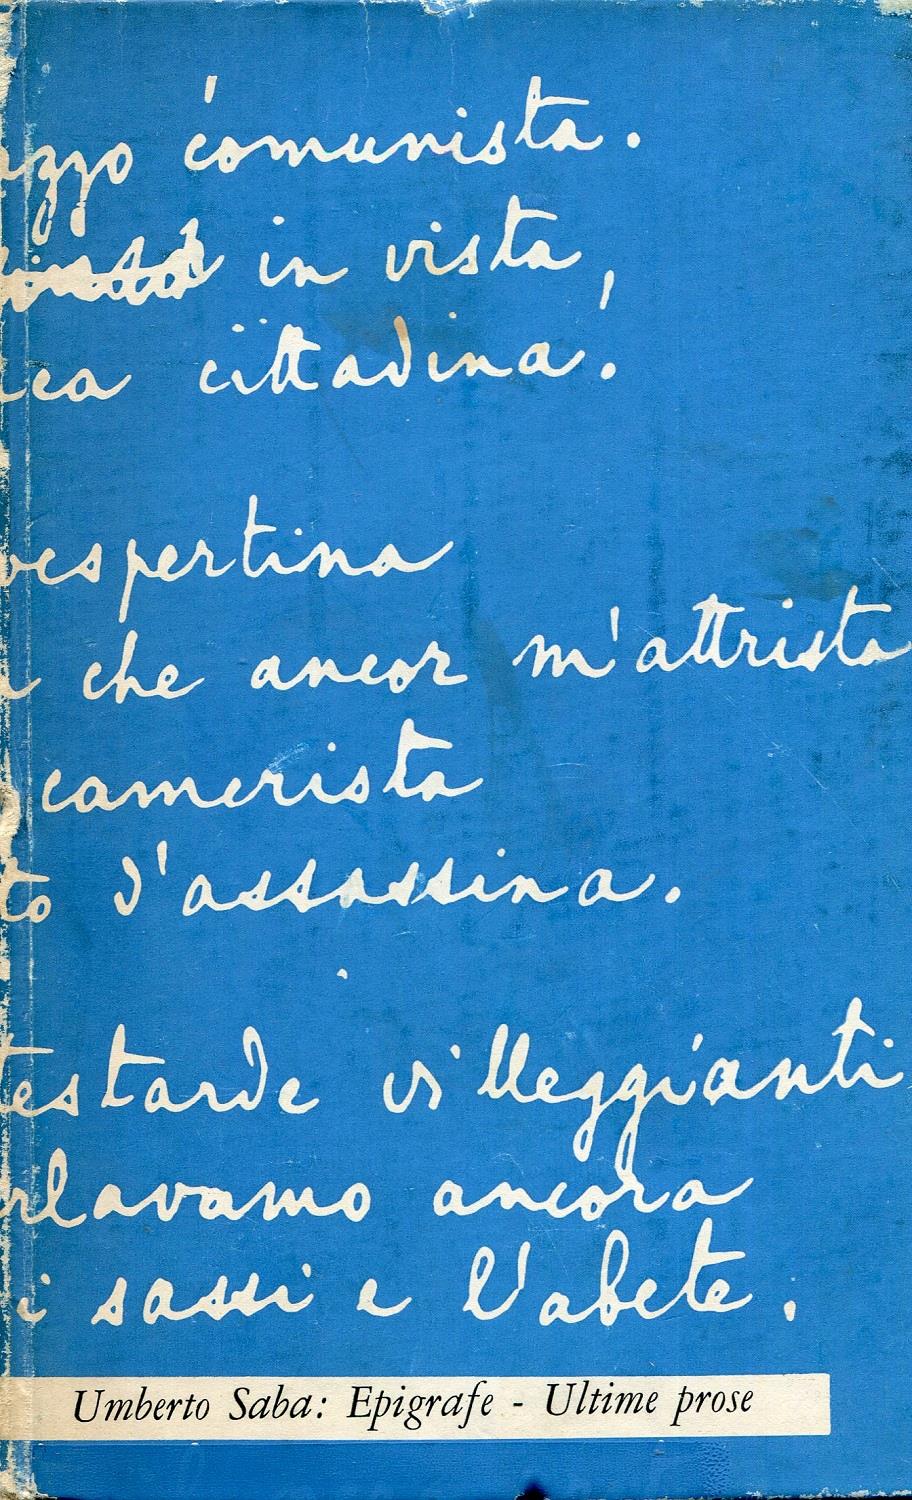 azzo comunista.
in vista,
ica cittadina!
vespertina
che ancor m'attrista
camerista
to d'assassina.
testarde villeggianti
rlavamo ancora
i sassi e l'abete.
Umberto Saba: Epigrafe - Ultime prose